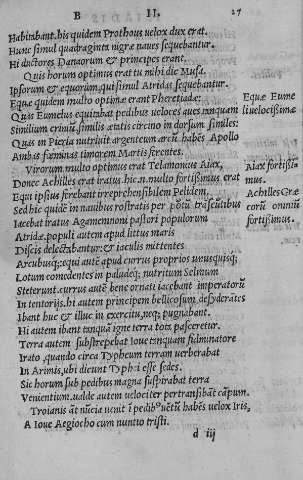 B II. 27
Habitabant. his quidem Prothous velox dux erat.
Hunc simul quadraginta nigræ naues sequebantur.
Hi ductores Danaorum & principes erant.
Quis horum optimus erat tu mihi dic Musa.
Ipsorum & equorum, qui simul Atridas sequebantur.
Equæ quidem multo optimæ erant Pheretiadæ: Equæ Eume
Quas Eumelus equitabat pedibus veloces aues tanquam li velocissimæ
Similium crinium, similis ætatis circino in dorsum similes:
Quas in Pieria nutriuit argenteum arcū habēs Apollo
Ambas fœminas timorem Martis ferentes.
Virorum multo optimus erat Telamonius Aiax, Aiax fortissi-
Donec Achilles erat iratus. hic .n. multo fortissimus erat mus.
Equi ipsius ferebant irreprehensibilem Peliden. Achilles Græ
Sed hic quidē in nauibus rostratis per pōtū trāseūtibus corū omniū
Iacebat iratus Agamemnoni pastori populorum fortissimus.
Atridæ. populi autem apud littus maris
Discis delectabantur: & iaculis mittentes
Arcubusq; equi autē apud currus proprios unusquisq;
Lotum comedentes in paludeq; nutritum Selinum
Steterunt. currus autē bene ornati iacebant imperatorū
In tentorijs. hi autem principem bellicosum desyderātes
Ibant huc & illuc in exercitu, neq; pugnabant.
Hi autem ibant tanquā igne terra tota pasceretur.
Terra autem substrepebat Ioue tanquam fulminatore
Irato, quando circa Typheum terram verberabat
In Arimis, ubi dicunt Typhi esse sedes.
Sic horum sub pedibus magna suspirabat terra
Venientium. ualde autem velociter pertransibāt cāpum.
Troianis āt nūcia uenit i pedibꝰ uētū habēs velox Iris,
A Ioue Aegiocho cum nuntio tristi.
d iij